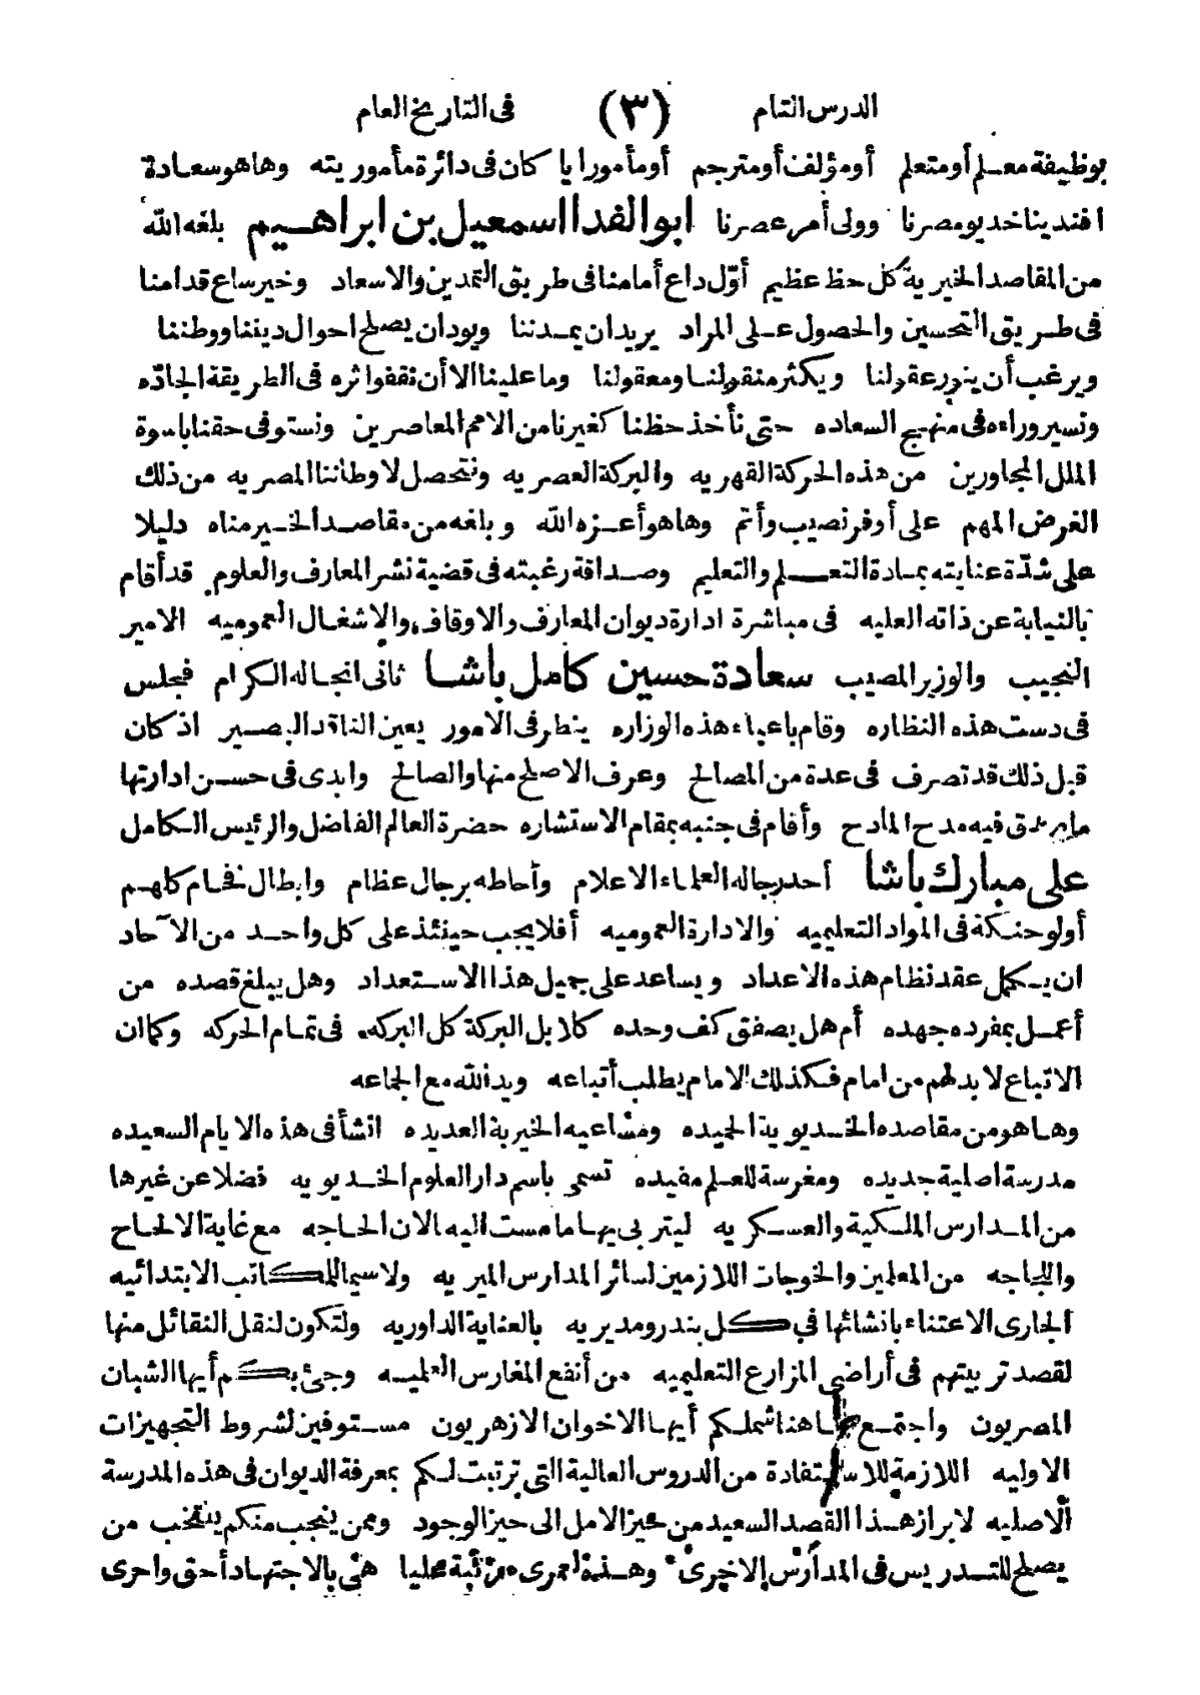 الدرس التام (٣) فى التاريخ العام
بوظيفة معلم أومتعلم أومؤلف أومترجم أومأمورا يا كان فى دائرة مأموريته وهاهو سعادة
افندينا خديو مصرنا وولى أمر عصرنا ابوالفدا اسمعيل بن ابراهيم بلغه الله
من المقاصد الخيرية كل حظ عظيم أوّل داع أمامنا فى طريق التمدين والاسعاد وخير ساع قدامنا
فى طريق التحسين والحصول على المراد يريد ان يمدننا ويود ان يصلح احوال ديننا ووطننا
ويرغب أن ينور عقولنا ويكثر منقولنا ومعقولنا وما علينا الا أن نقفوا ثره فى الطريقة الجادّه
ونسير وراءه فى منهج السعاده حتى نأخذ حظنا كغيرنا من الامم المعاصرين ونستوفى حقنا باسوة
الملل المجاورين من هذه الحركة القهريه والبركة العصريه ونتحصل لاوطاننا المصريه من ذلك
الغرض المهم على أوفر نصيب وأتم وهاهو أعزه الله وبلغه من مقاصد الخير مناه دليلا
على شدّة عنايته بمادة التعلم والتعليم وصداقة رغبته فى قضية نشر المعارف والعلوم قد أقام
بالنيابة عن ذاته العليه فى مباشرة ادارة ديوان المعارف والاوقاف والاشغال العموميه الامير
النجيب والوزير المصيب سعادة حسين كامل باشا ثانى انجاله الكرام فجلس
فى دست هذه النظاره وقام باعباء هذه الوزاره ينظر فى الامور بعين الناقد البصير اذ كان
قبل ذلك قد تصرف فى عدة من المصالح وعرف الاصلح منها والصالح وابدى فى حسن ادارتها
ما يصدق فيه مدح المادح وأقام فى جنبه بمقام الاستشاره حضرة العالم الفاضل والرئيس الكامل
على مبارك باشا أحد رجاله العلماء الاعلام وأحاطه برجال عظام وابطال فخام كلهم
أولو حنكة فى المواد التعليميه والادارة العموميه أفلا يجب حينئذ على كل واحد من الآحاد
ان يكمل عقد نظام هذه الاعداد ويساعد على جميل هذا الاستعداد وهل يبلغ قصده من
أعمل بمفرده جهده أم هل يصفق كف وحده كلا بل البركة كل البركه فى تمام الحركه وكما ان
الاتباع لا بد لهم من امام فكذلك الامام يطلب أتباعه ويد الله مع الجماعه
وها هو من مقاصده الخديوية الحميده ومساعيه الخيرية العديده انشأ فى هذه الايام السعيده
مدرسة اصلية جديده ومغرسة للعلم مفيده تسمى باسم دار العلوم الخديويه فضلا عن غيرها
من المدارس الملكية والعسكريه ليتربى بها ما مست اليه الان الحاجه مع غاية الالحاح
واللجاجه من المعلمين والخوجات اللازمين لسائر المدارس الميريه ولاسيما للمكاتب الابتدائيه
الجارى الاعتناء بانشائها فى كل بندر ومديريه بالعناية الداوريه ولتكون لنقل النقائل منها
لقصد تربيتهم فى أراضى المزارع التعليميه من أنفع المغارس العلميه وجئ بكم أيها الشبان
المصريون واجتمع هاهنا شملكم أيها الاخوان الازهريون مستوفين لشروط التجهيزات
الاوليه اللازمة للاستفادة من الدروس العالية التى ترتبت لكم بمعرفة الديوان فى هذه المدرسة
الاصليه لابراز هذا القصد السعيد من حيز الامل الى حيز الوجود وممن ينجب منكم ينتخب من
يصلح للتدريس فى المدارس الاخرى وهذه لعمرى مرتبة عليا هى بالاجتهاد أحق واحرى